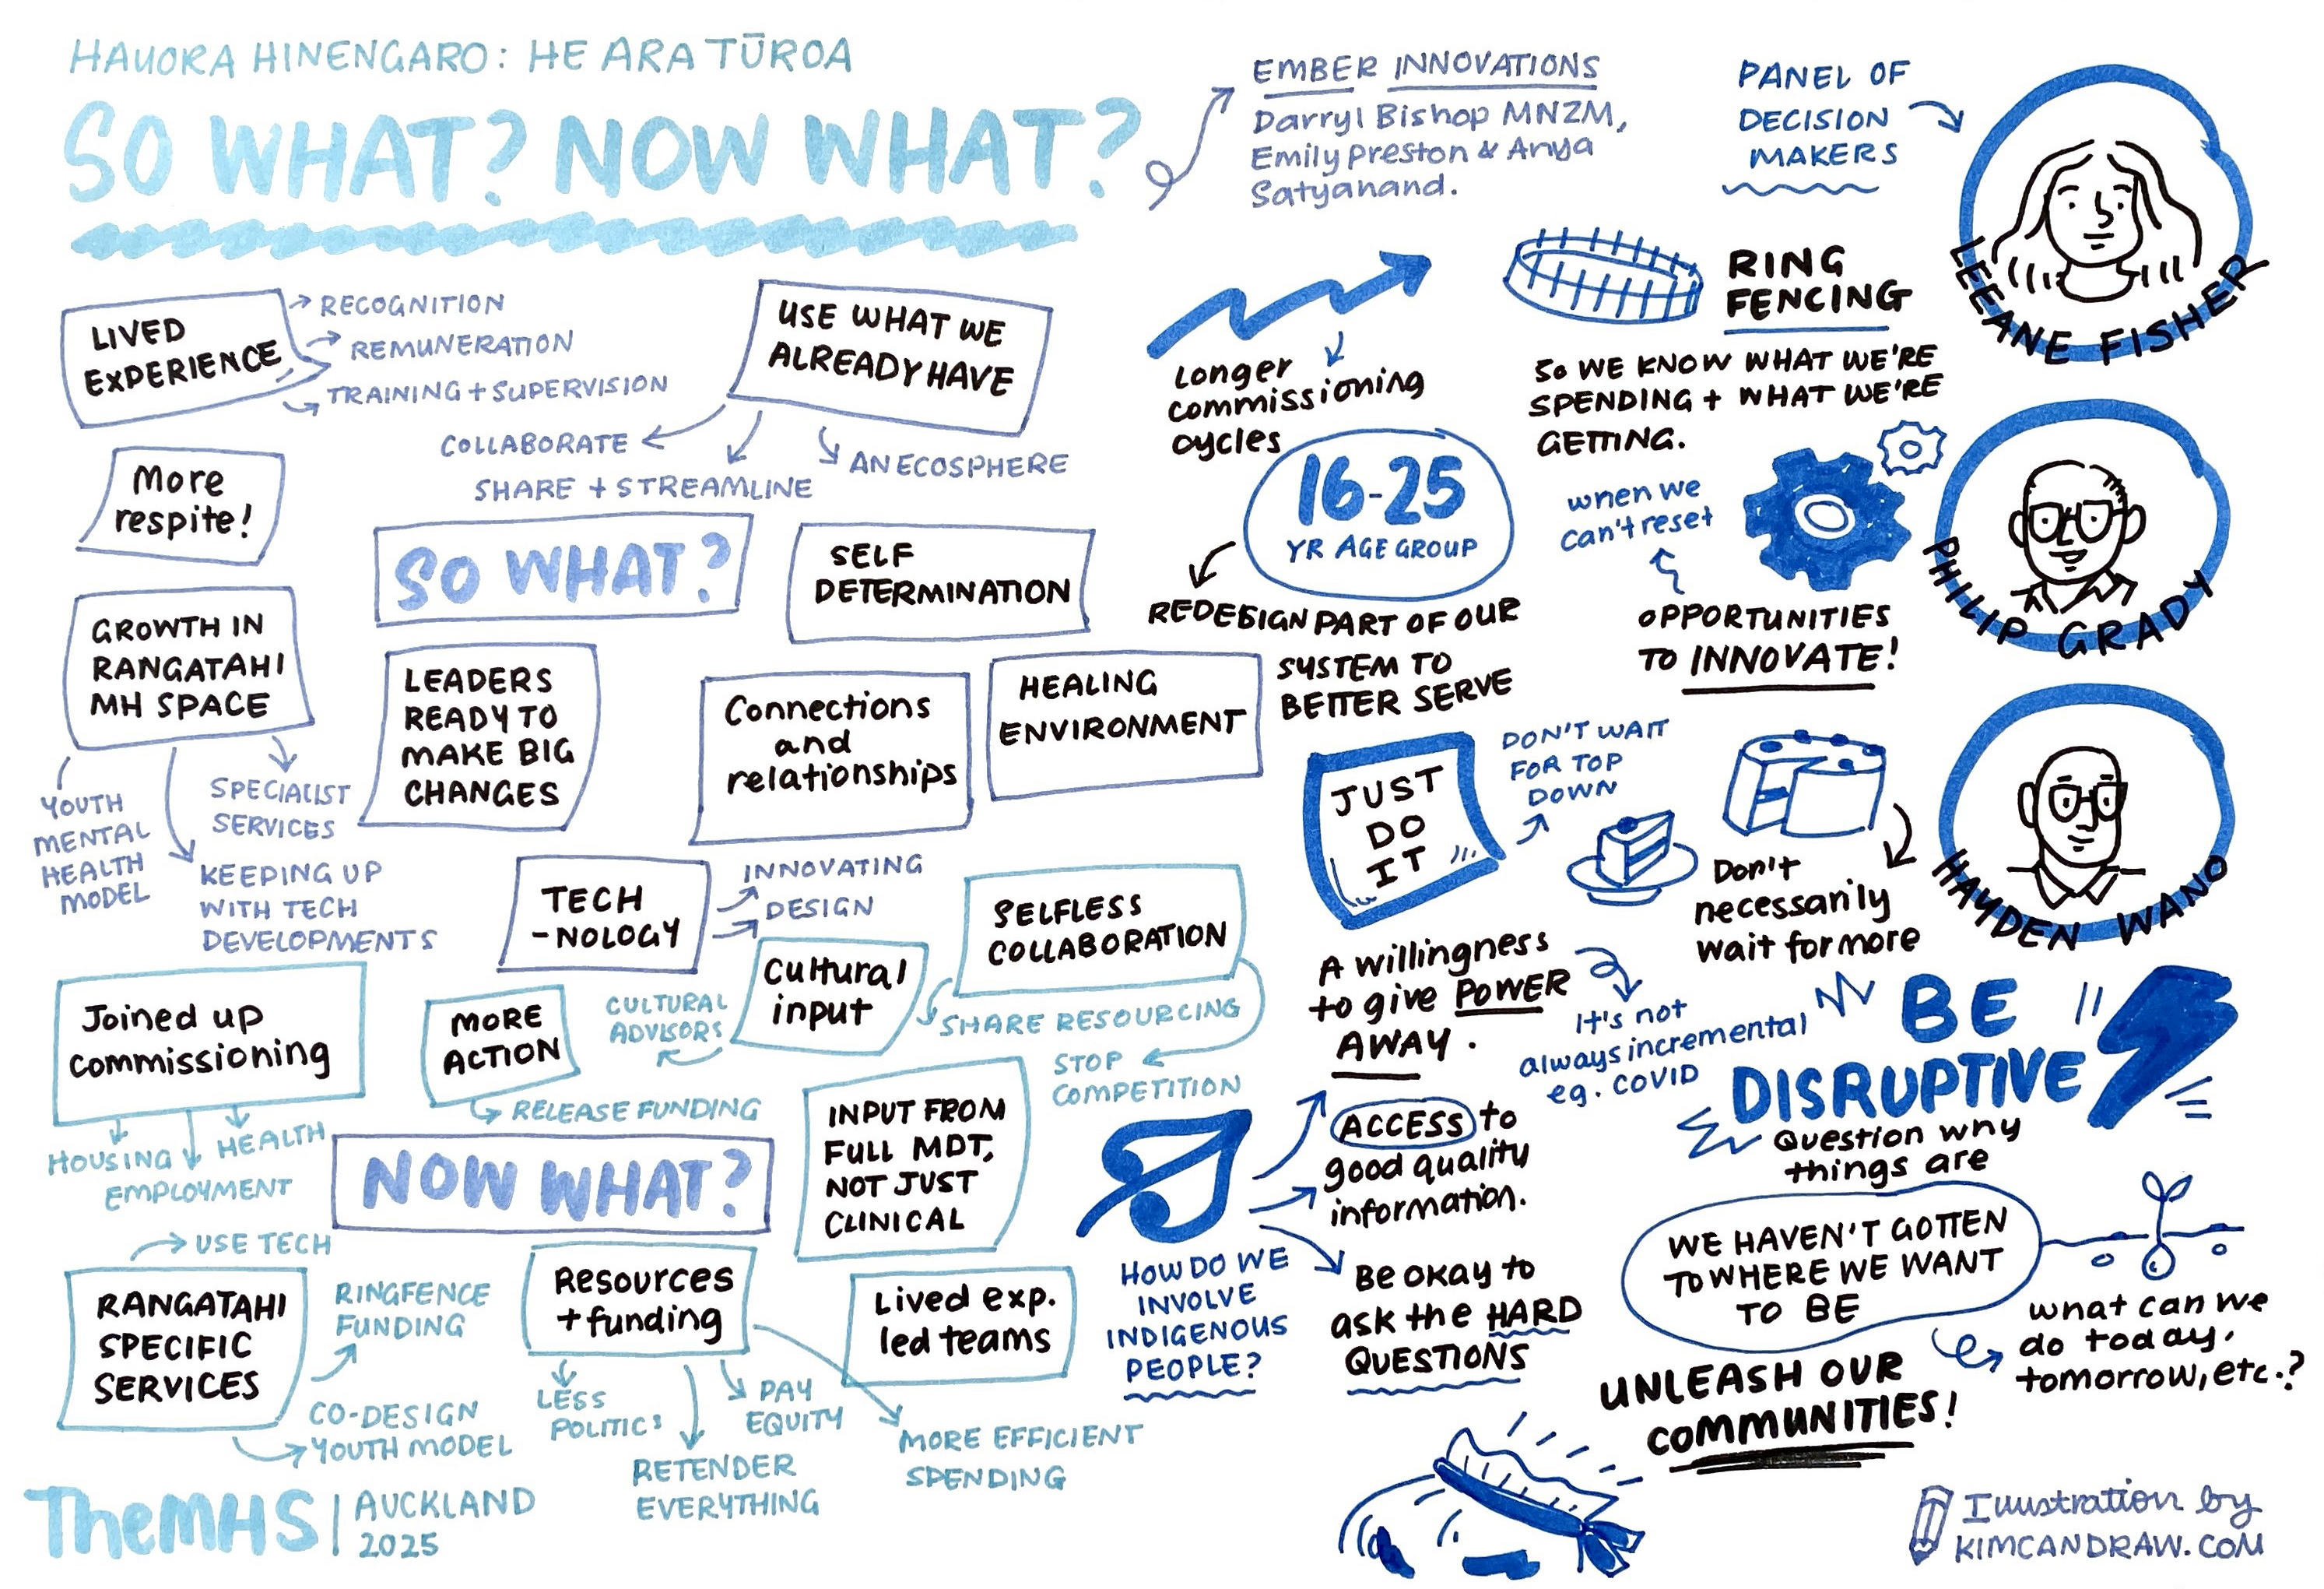 HAUORA HINENGARO: HE ARA TŪROA
SO WHAT? NOW WHAT?
EMBER INNOVATIONS
Darryl Bishop MNZM,
Emily Preston & Anya
Satyanand.
PANEL OF
DECISION
MAKERS
LEEANE FISHER
PHILIP GRADY
HAYDEN WANO
LIVED
EXPERIENCE
RECOGNITION
REMUNERATION
TRAINING + SUPERVISION
USE WHAT WE
ALREADY HAVE
COLLABORATE
SHARE + STREAMLINE
AN ECOSPHERE
More
respite!
SO WHAT?
SELF
DETERMINATION
GROWTH IN
RANGATAHI
MH SPACE
YOUTH
MENTAL
HEALTH
MODEL
SPECIALIST
SERVICES
KEEPING UP
WITH TECH
DEVELOPMENTS
LEADERS
READY TO
MAKE BIG
CHANGES
Connections
and
relationships
HEALING
ENVIRONMENT
TECH
-NOLOGY
INNOVATING
DESIGN
Cultural
input
CULTURAL
ADVISORS
SELFLESS
COLLABORATION
SHARE RESOURCING
STOP
COMPETITION
Joined up
commissioning
HOUSING
EMPLOYMENT
HEALTH
MORE
ACTION
RELEASE FUNDING
NOW WHAT?
INPUT FROM
FULL MDT,
NOT JUST
CLINICAL
USE TECH
RANGATAHI
SPECIFIC
SERVICES
RINGFENCE
FUNDING
CO-DESIGN
YOUTH MODEL
Resources
+ funding
LESS
POLITICS
RETENDER
EVERYTHING
PAY
EQUITY
MORE EFFICIENT
SPENDING
Lived exp.
led teams
TheMHS | AUCKLAND
2025
Longer
commissioning
cycles
RING
FENCING
SO WE KNOW WHAT WE'RE
SPENDING + WHAT WE'RE
GETTING.
16-25
YR AGE GROUP
REDESIGN PART OF OUR
SYSTEM TO
BETTER SERVE
when we
can't reset
OPPORTUNITIES
TO INNOVATE!
JUST
DO
IT
DON'T WAIT
FOR TOP
DOWN
Don't
necessarily
wait for more
A willingness
to give POWER
AWAY.
It's not
always incremental
eg. COVID
BE
DISRUPTIVE
Question why
things are
ACCESS to
good quality
information.
HOW DO WE
INVOLVE
INDIGENOUS
PEOPLE?
Be okay to
ask the HARD
QUESTIONS
WE HAVEN'T GOTTEN
TO WHERE WE WANT
TO BE
what can we
do today,
tomorrow, etc.?
UNLEASH OUR
COMMUNITIES!
Illustration by
KIMCANDRAW.COM